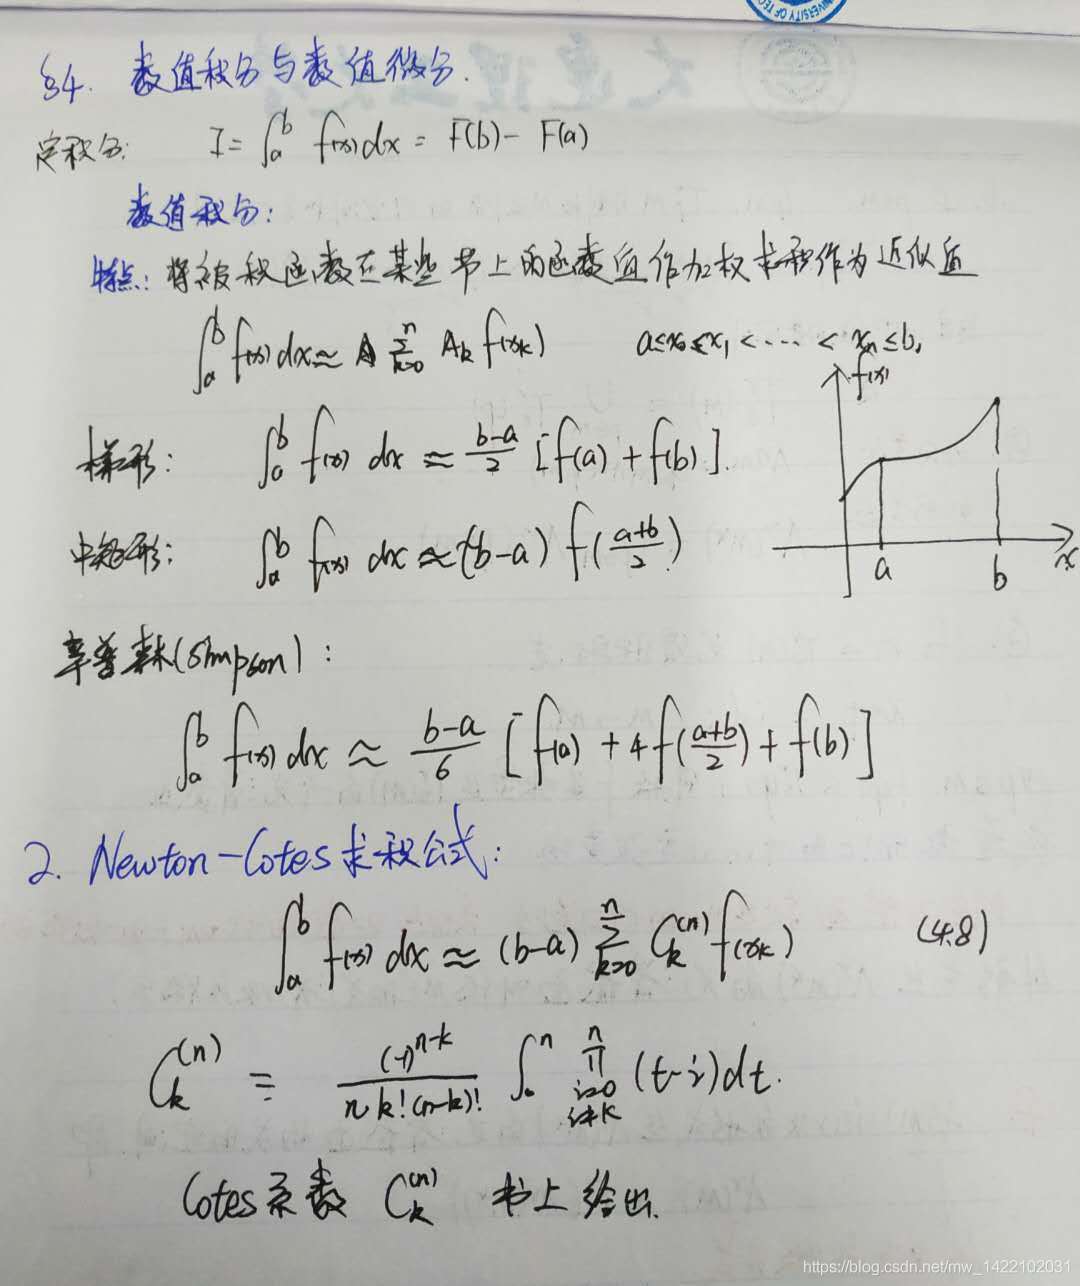 UNIVERSITY OF TEC
§4. 数值积分与数值微分.
定积分: I = ∫_a^b f(x)dx = F(b) - F(a)
数值积分:
特点: 将被积函数在某些节上的函数值作加权求和作为近似值
∫_a^b f(x)dx ≈ ∑_{k=0}^n A_k f(x_k) a≤x_0≤x_1<⋯<x_n≤b,
f(x)
梯形: ∫_a^b f(x) dx ≈ (b-a)/2 [f(a) + f(b)].
中矩形: ∫_a^b f(x) dx ≈ (b-a) f((a+b)/2)
a b x
辛普森(Simpson):
∫_a^b f(x)dx ≈ (b-a)/6 [f(a) + 4f((a+b)/2) + f(b)]
2. Newton-Cotes求积公式:
∫_a^b f(x)dx ≈ (b-a) ∑_{k=0}^n C_k^{(n)} f(x_k) (4.8)
C_k^{(n)} = (-1)^{n-k}/(n k!(n-k)!) ∫_0^n ∏_{i=0, i≠k}^n (t-i)dt.
Cotes系数 C_k^{(n)} 书上给出.
https://blog.csdn.net/mw_1422102031